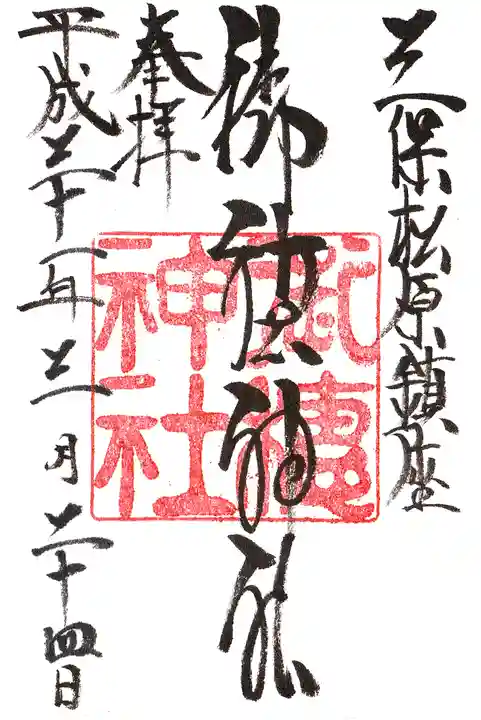 三保松原鎮座
御穂神社
奉拝
平成二十一年三月二十四日
御穂
神社